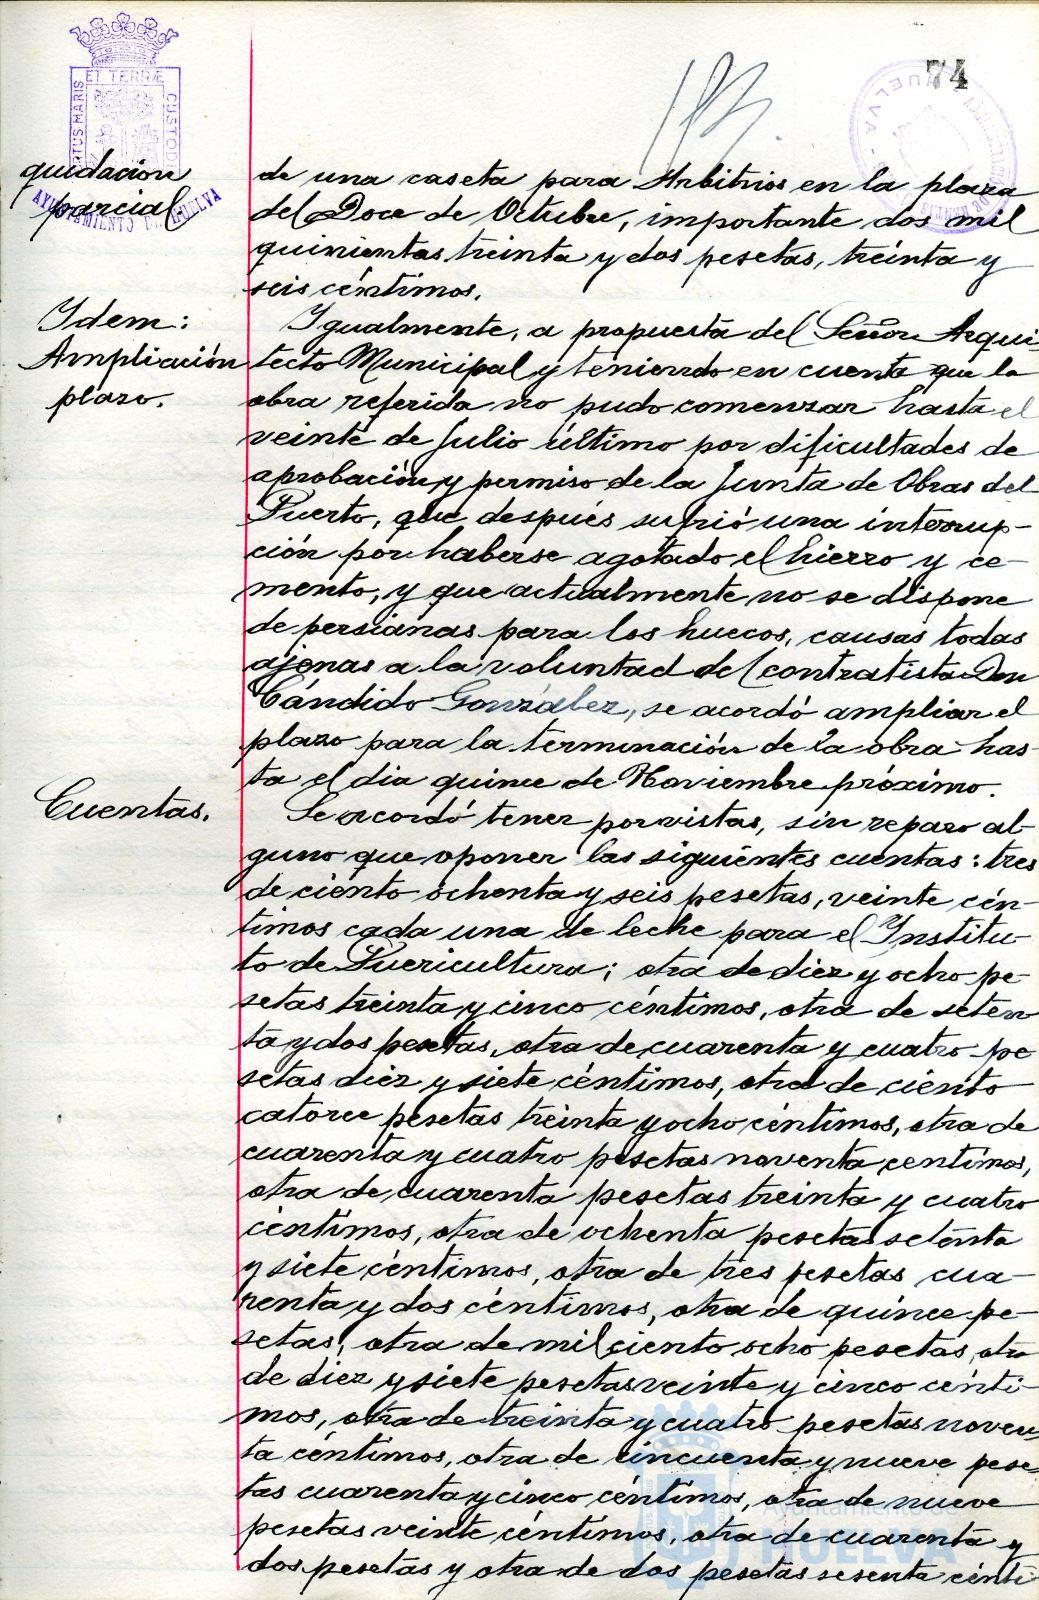 74
ET TERRÆ
CUSTODIA
PORTUS MARIS
AYUNTAMIENTO DE HUELVA
HUELVA
quidacion
parcial
de una caseta para Arbitrios en la plaza
del Doce de Octubre, importante dos mil
quinientas treinta y dos pesetas, treinta y
seis céntimos.
Idem:
Ampliación
plazo.
Igualmente, a propuesta del Señor Arqui-
tecto Municipal y teniendo en cuenta que la
obra referida no pudo comenzar hasta el
veinte de Julio último por dificultades de
aprobación y permiso de la Junta de Obras del
Puerto, que después sufrió una interrup-
ción por haberse agotado el hierro y ce-
mento, y que actualmente no se dispone
de persianas para los huecos, causas todas
ajenas a la voluntad del contratista Don
Cándido González, se acordó ampliar el
plazo para la terminación de la obra has-
ta el dia quince de Noviembre próximo.
Cuentas.
Se acordó tener por vistas, sin reparo al-
guno que oponer las siguientes cuentas: tres
de ciento ochenta y seis pesetas, veinte cén-
timos cada una de leche para el Institu-
to de Puericultura; otra de diez y ocho pe-
setas treinta y cinco céntimos, otra de seten
ta y dos pesetas, otra de cuarenta y cuatro pe
setas diez y siete céntimos, otra de ciento
catorce pesetas treinta y ocho céntimos, otra de
cuarenta y cuatro pesetas noventa centimos,
otra de cuarenta pesetas treinta y cuatro
céntimos, otra de ochenta pesetas setenta
y siete céntimos, otra de tres pesetas cua-
renta y dos céntimos, otra de quince pe-
setas, otra de mil ciento ocho pesetas, otra
de diez y siete pesetas veinte y cinco cénti-
mos, otra de treinta y cuatro pesetas noven
ta céntimos, otra de cincuenta y nueve pese-
tas cuarenta y cinco céntimos, otra de nueve
pesetas veinte céntimos, otra de cuarenta y
dos pesetas y otra de dos pesetas sesenta cénti-
Ayuntamiento de
HUELVA